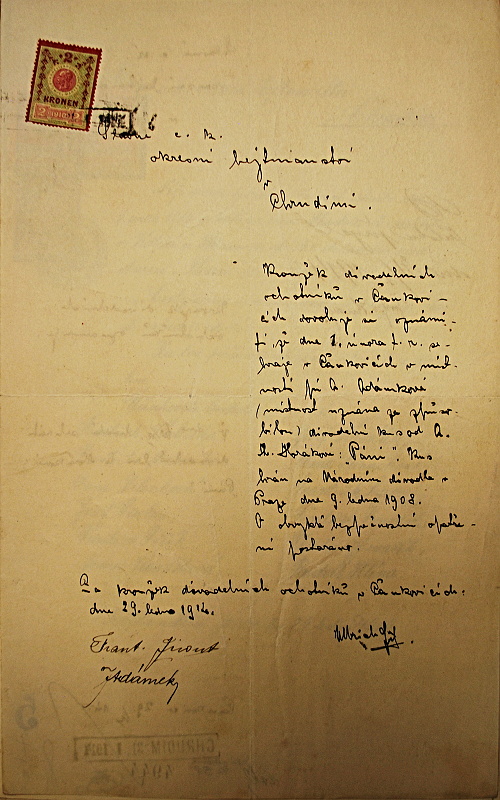 2
KRONEN
Slavné c. k.
okresní hejtmanství
v
Chrudimi.
Kroužek divadelních
ochotníků v Čankovi-
cích dovoluje si oznámi-
ti, že dne 2. února t. r. se-
hraje v Čankovicích v míst-
nosti pí A. Adámkové
(místnost uznána za způso-
bilou) divadelní kus od A.
M. Horákové: "Páni". Kus
hrán na Národním divadle v
Praze dne 9. ledna 1908.
O obvyklé bezpečnostní opatře-
ní postaráno.
Za kroužek divadelních ochotníků v Čankovicích:
dne 29. ledna 1914.
Frant. Jirout
Ulrich
J. Adámek